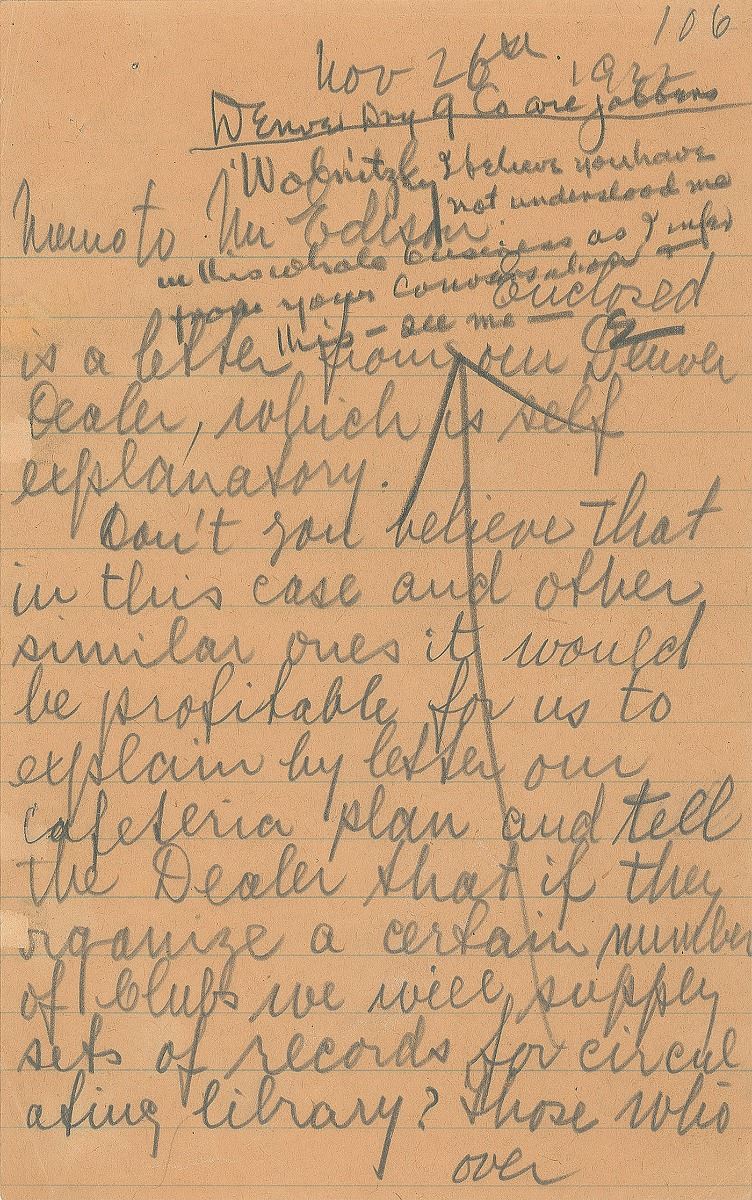 106
Nov 26th 1922
Denver Dry G Co are jobbers
Wolnitzky I believe you have
not understood me
Memo to Mr Edison.
in this whole business as I infer
from your conversation
Enclosed
this — see me — E
is a letter from our Denver
Dealer, which is self
explanatory.
Don't you believe that
in this case and other
similar ones it would
be profitable for us to
explain by letter our
cafeteria plan and tell
the Dealer that if they
organize a certain number
of Clubs we will supply
sets of records for circul
ating library? Those who
over